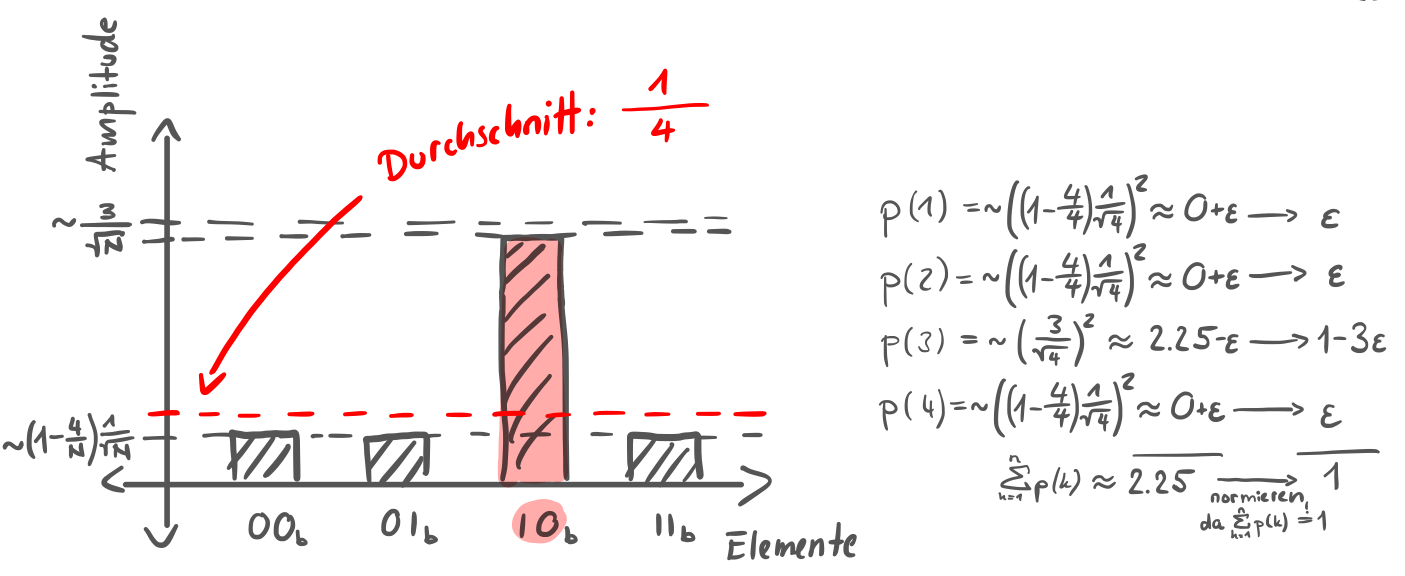 Amplitude
Durchschnitt: 1/4
~ 3/√N
~(1-4/N) 1/√N
00b 01b 10b 11b
Elemente
p(1) = ~((1-4/4) 1/√4)² ≈ 0+ε → ε
p(2) = ~((1-4/4) 1/√4)² ≈ 0+ε → ε
p(3) = ~(3/√4)² ≈ 2.25-ε → 1-3ε
p(4) = ~((1-4/4) 1/√4)² ≈ 0+ε → ε
∑ₖ₌₁ⁿ p(k) ≈ 2.25 → 1
normieren,
da ∑ₖ₌₁ⁿ p(k) =! 1